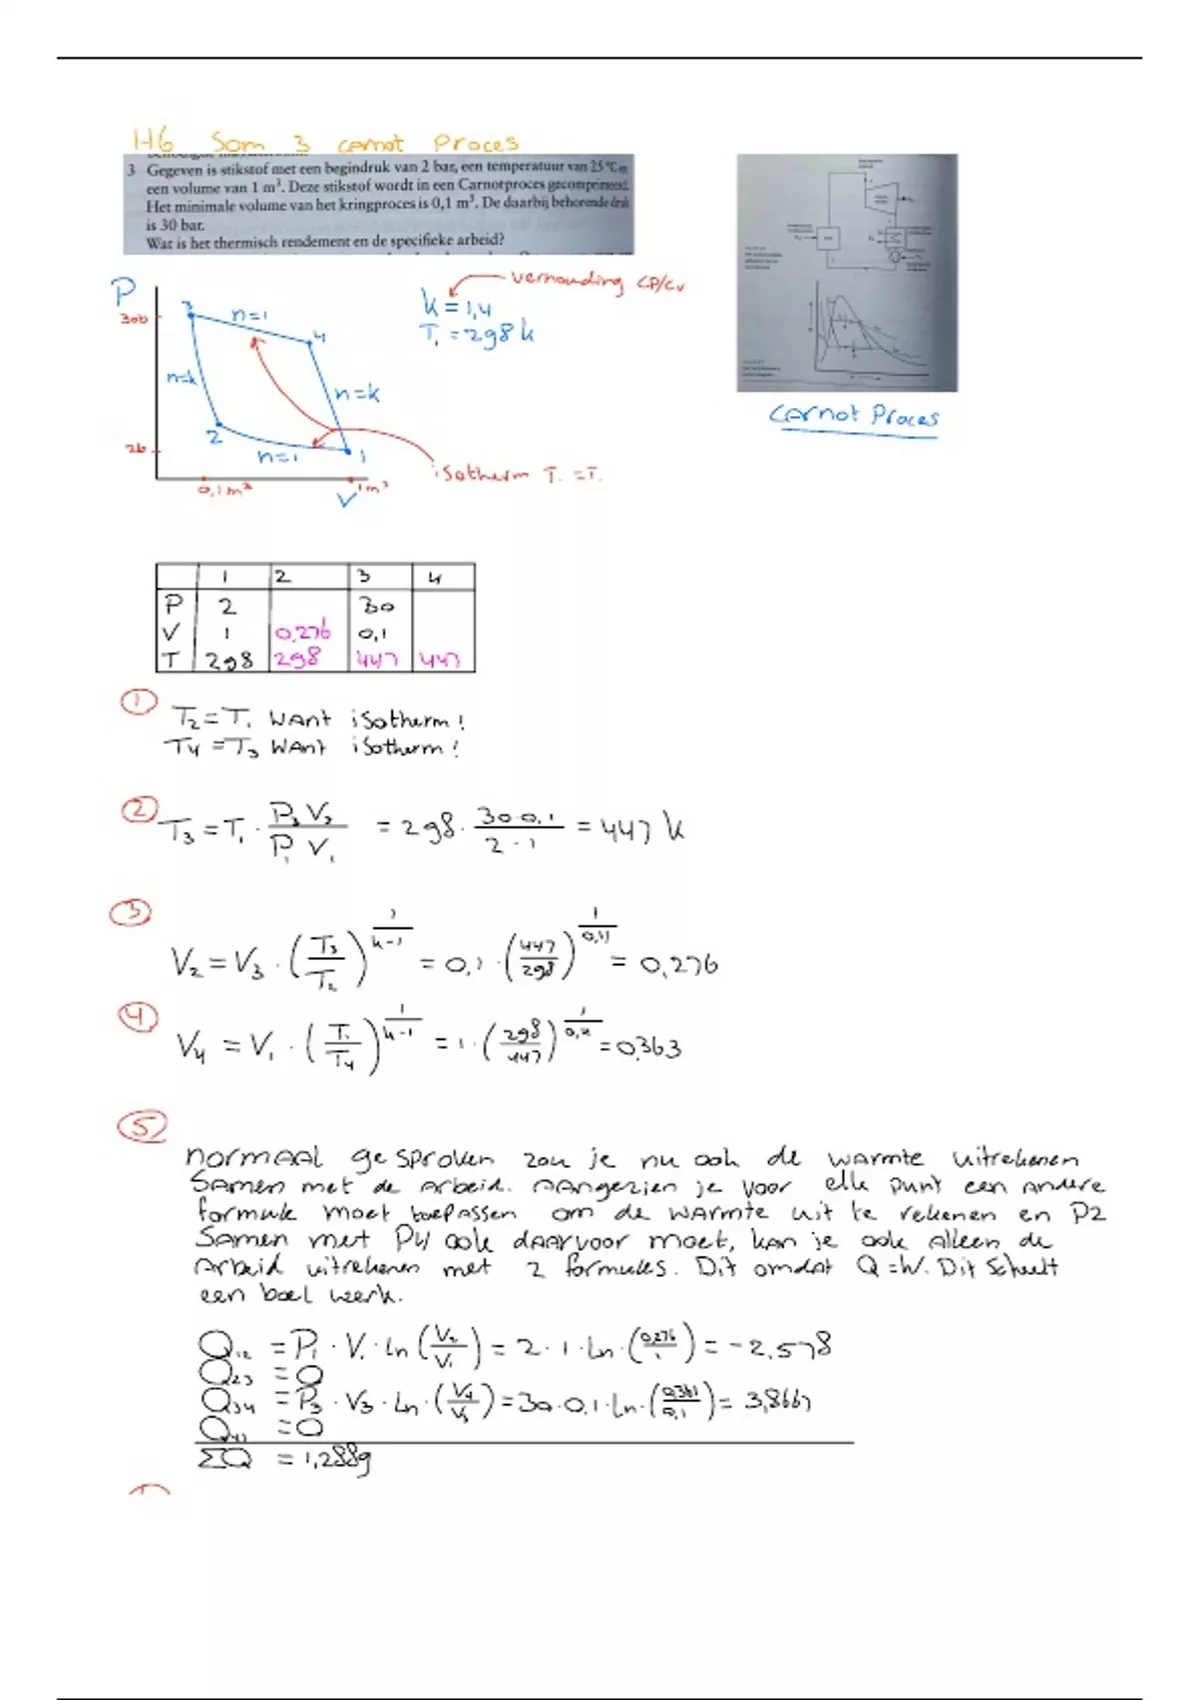 H6 Som 3 carnot Proces
3 Gegeven is stikstof met een begindruk van 2 bar, een temperatuur van 25 °C en
een volume van 1 m³. Deze stikstof wordt in een Carnotproces gecomprimeerd.
Het minimale volume van het kringproces is 0,1 m³. De daarbij behorende druk
is 30 bar.
Wat is het thermisch rendement en de specifieke arbeid?
P
30b
3
n=1
4
n=k
n=k
2
n=1
1
2b
0,1m³
1m³
V
verhouding CP/Cv
k = 1,4
T₁ = 298 k
isotherm T. = T.
carnot Proces
1 2 3 4
P 2 30
V 1 0,276 0,1
T 298 298 447 447
① T₂ = T₁ want isotherm!
T₄ = T₃ want isotherm!
② T₃ = T₁ · P₃V₃ / P₁V₁ = 298 · 30·0,1 / 2·1 = 447 k
③ V₂ = V₃ · (T₃/T₂)^(1/k-1) = 0,1 · (447/298)^(1/0,4) = 0,276
④ V₄ = V₁ · (T₁/T₄)^(1/k-1) = 1 · (298/447)^(1/0,4) = 0,363
⑤
normaal gesproken zou je nu ook de warmte uitrekenen
samen met de arbeid. Aangezien je voor elk punt een andere
formule moet toepassen om de warmte uit te rekenen en P2
samen met P4 ook daarvoor moet, kan je ook alleen de
arbeid uitrekenen met 2 formules. Dit omdat Q = W. Dit scheelt
een boel werk.
Q₁₂ = P₁ · V₁ · ln (V₂/V₁) = 2 · 1 · ln · (0,276/1) = -2,578
Q₂₃ = 0
Q₃₄ = P₃ · V₃ · ln · (V₄/V₃) = 30 · 0,1 · ln · (0,361/0,1) = 3,8667
Q₄₁ = 0
ΣQ = 1,2889